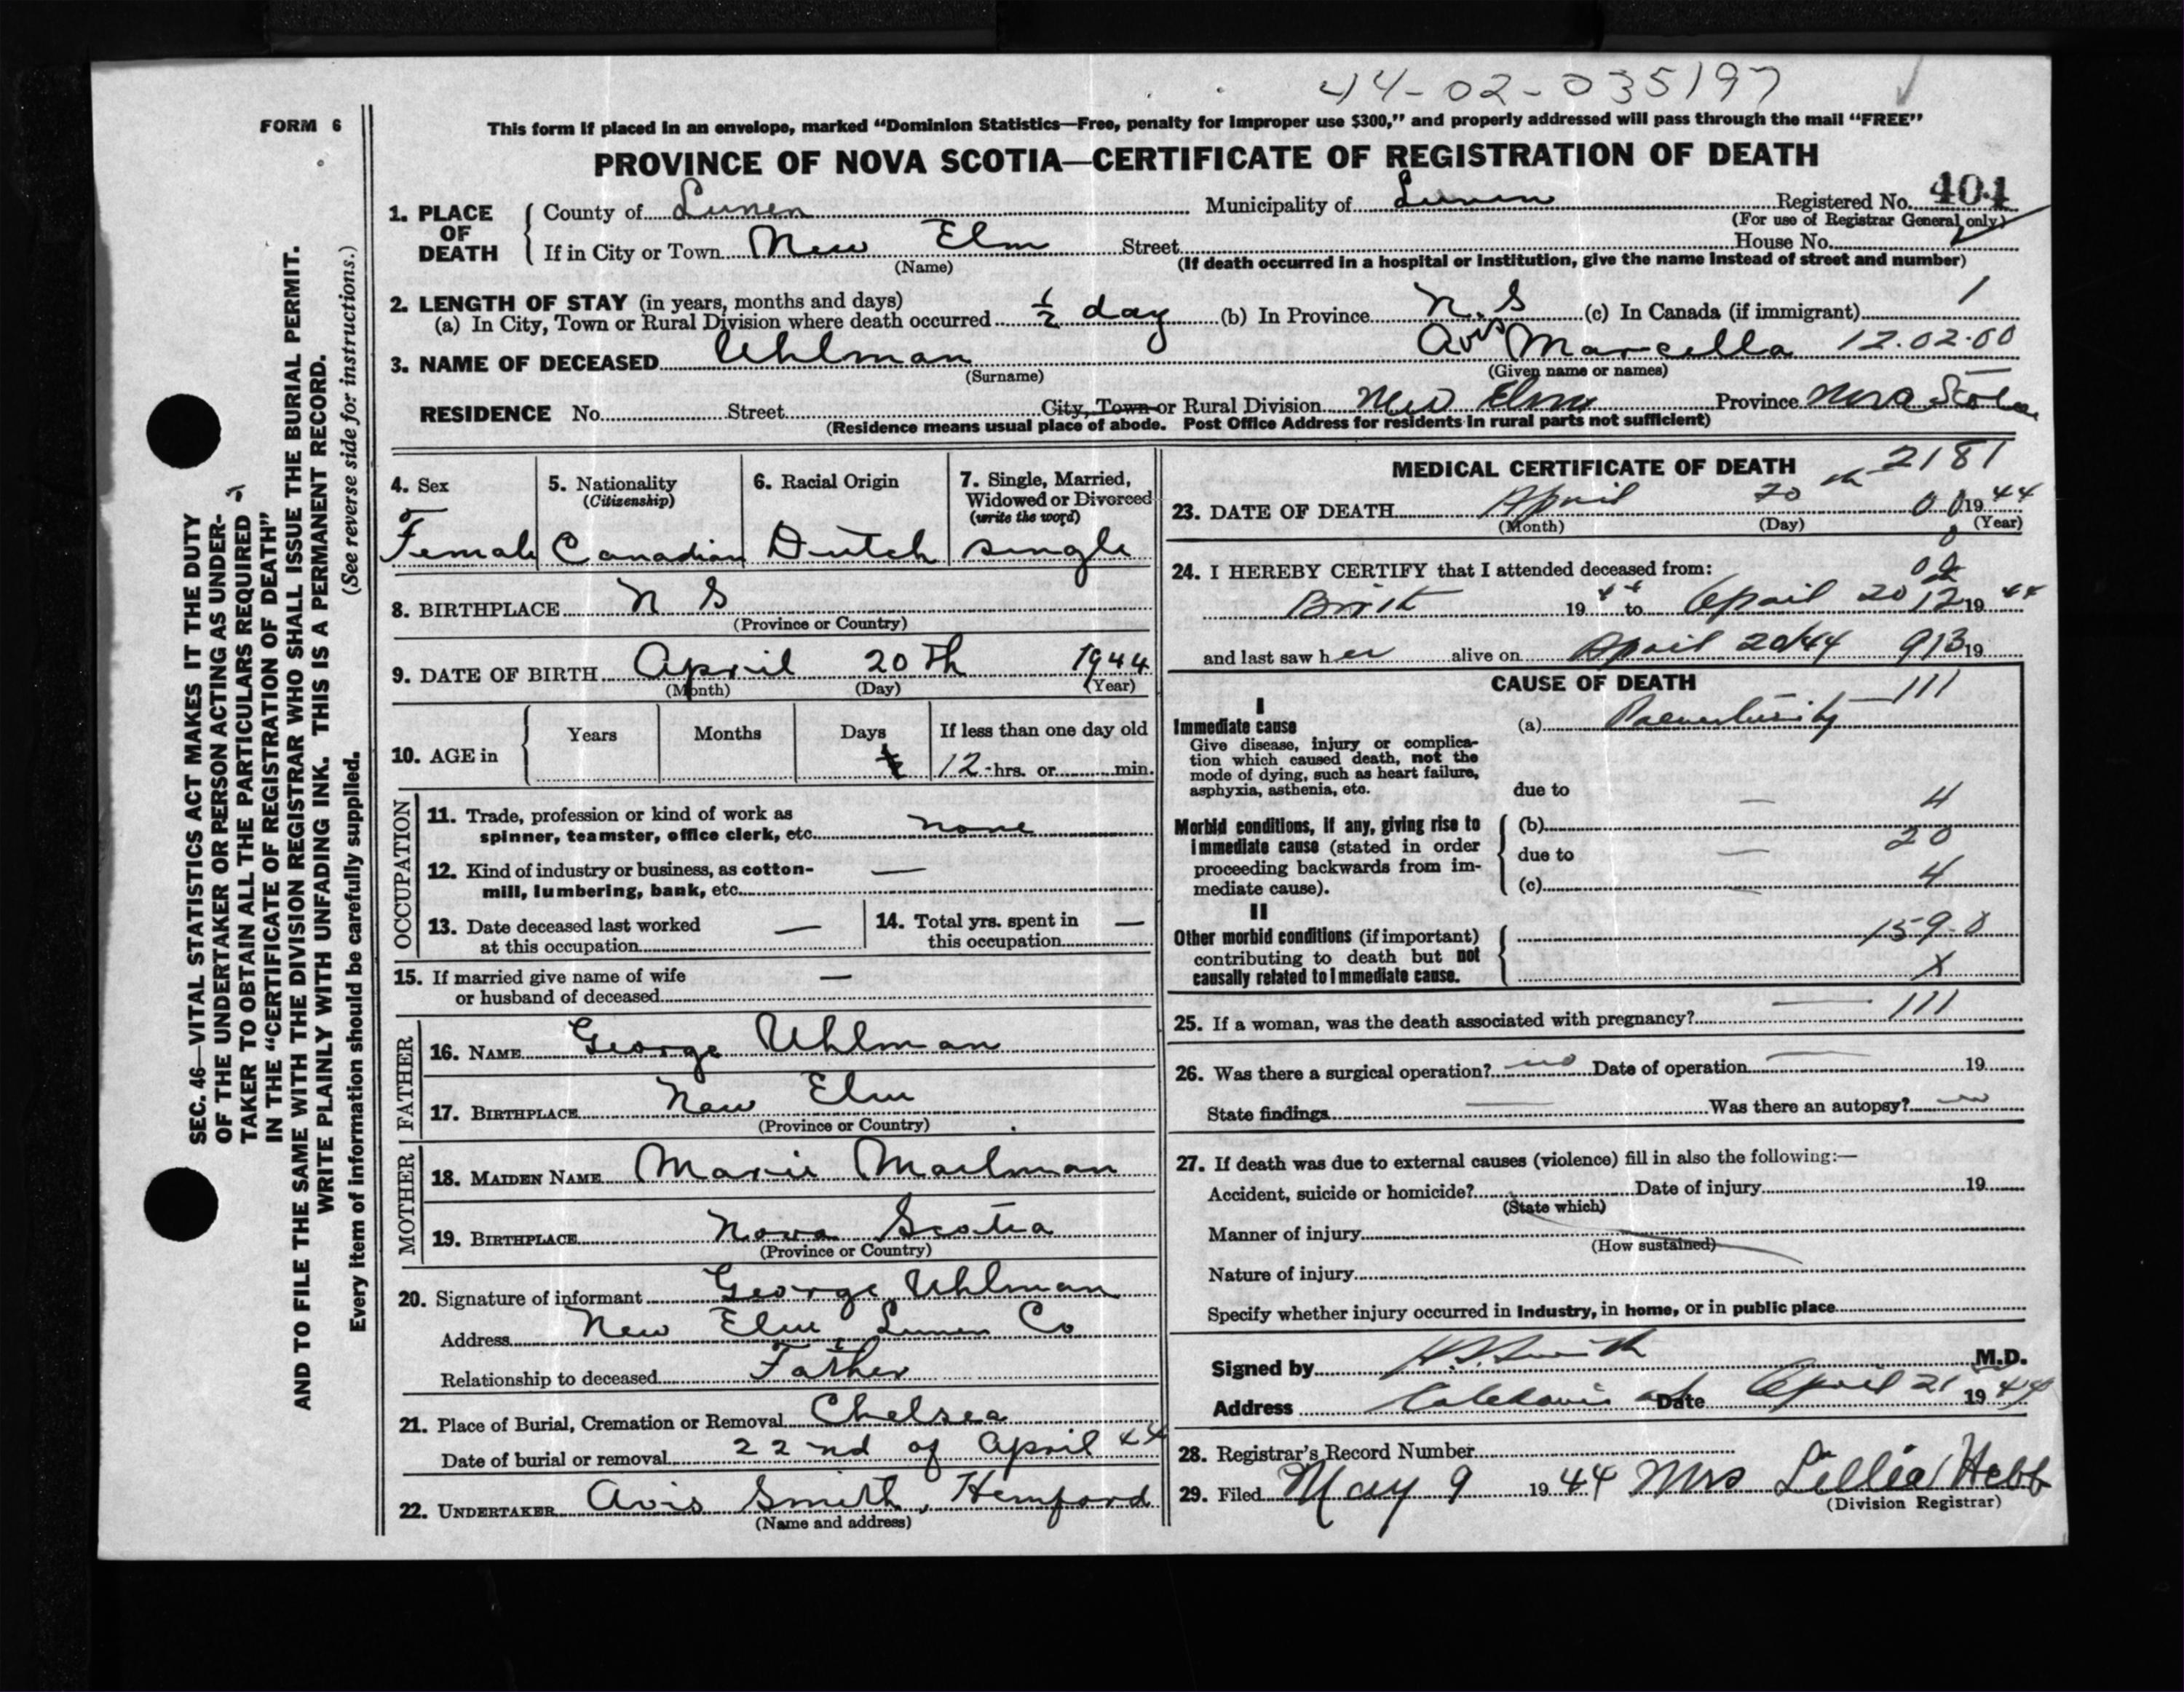 44-02-035197
FORM 6
This form if placed in an envelope, marked “Dominion Statistics—Free, penalty for improper use $300,” and properly addressed will pass through the mail “FREE”
PROVINCE OF NOVA SCOTIA—CERTIFICATE OF REGISTRATION OF DEATH
1. PLACE OF DEATH County of Lunen Municipality of Lunen Registered No. 404
(For use of Registrar General only)
If in City or Town New Elm Street House No.
(Name) (If death occurred in a hospital or institution, give the name instead of street and number)
2. LENGTH OF STAY (in years, months and days)
(a) In City, Town or Rural Division where death occurred 1/2 day (b) In Province N.S (c) In Canada (if immigrant) 1
3. NAME OF DECEASED Uhlman Avis Marcella 12.02.00
(Surname) (Given name or names)
RESIDENCE No. Street City, Town or Rural Division New Elm Province Nova Scotia
(Residence means usual place of abode. Post Office Address for residents in rural parts not sufficient)
4. Sex Female
5. Nationality (Citizenship) Canadian
6. Racial Origin Dutch
7. Single, Married, Widowed or Divorced (write the word) single
8. BIRTHPLACE N S
(Province or Country)
9. DATE OF BIRTH April 20th 1944
(Month) (Day) (Year)
10. AGE in Years Months Days If less than one day old
12 hrs. or min.
OCCUPATION
11. Trade, profession or kind of work as
spinner, teamster, office clerk, etc. none
12. Kind of industry or business, as cotton-
mill, lumbering, bank, etc. —
13. Date deceased last worked
at this occupation —
14. Total yrs. spent in
this occupation —
15. If married give name of wife
or husband of deceased —
FATHER
16. NAME George Uhlman
17. BIRTHPLACE New Elm
(Province or Country)
MOTHER
18. MAIDEN NAME Marie Mailman
19. BIRTHPLACE Nova Scotia
(Province or Country)
20. Signature of informant George Uhlman
Address New Elm, Lunen Co
Relationship to deceased Father
21. Place of Burial, Cremation or Removal Chelsea
Date of burial or removal 22nd of April 44
22. UNDERTAKER Avis Smith, Hemford
(Name and address)
MEDICAL CERTIFICATE OF DEATH 2181
23. DATE OF DEATH April 20th 00 1944
(Month) (Day) (Year)
24. I HEREBY CERTIFY that I attended deceased from:
Birth 1944 to April 20 12 1944
and last saw her alive on April 20/44 913 19
CAUSE OF DEATH
I
Immediate cause
Give disease, injury or complica-
tion which caused death, not the
mode of dying, such as heart failure,
asphyxia, asthenia, etc.
(a) Prematurity 111
due to — 4
Morbid conditions, if any, giving rise to
immediate cause (stated in order
proceeding backwards from im-
mediate cause).
(b) 20
due to —
(c) — 4
II
Other morbid conditions (if important)
contributing to death but not
causally related to immediate cause.
159.0
X
25. If a woman, was the death associated with pregnancy? — 111
26. Was there a surgical operation? no Date of operation — 19
State findings — Was there an autopsy? no
27. If death was due to external causes (violence) fill in also the following:—
Accident, suicide or homicide? Date of injury 19
(State which)
Manner of injury
(How sustained)
Nature of injury
Specify whether injury occurred in industry, in home, or in public place
Signed by Smith M.D.
Address Caledonia Date April 21 1944
28. Registrar's Record Number
29. Filed May 9 1944 Mrs Lillia Hebb
(Division Registrar)
SEC. 46—VITAL STATISTICS ACT MAKES IT THE DUTY
OF THE UNDERTAKER OR PERSON ACTING AS UNDER-
TAKER TO OBTAIN ALL THE PARTICULARS REQUIRED
IN THE “CERTIFICATE OF REGISTRATION OF DEATH”
AND TO FILE THE SAME WITH THE DIVISION REGISTRAR WHO SHALL ISSUE THE BURIAL PERMIT.
WRITE PLAINLY WITH UNFADING INK. THIS IS A PERMANENT RECORD.
Every item of information should be carefully supplied. (See reverse side for instructions.)